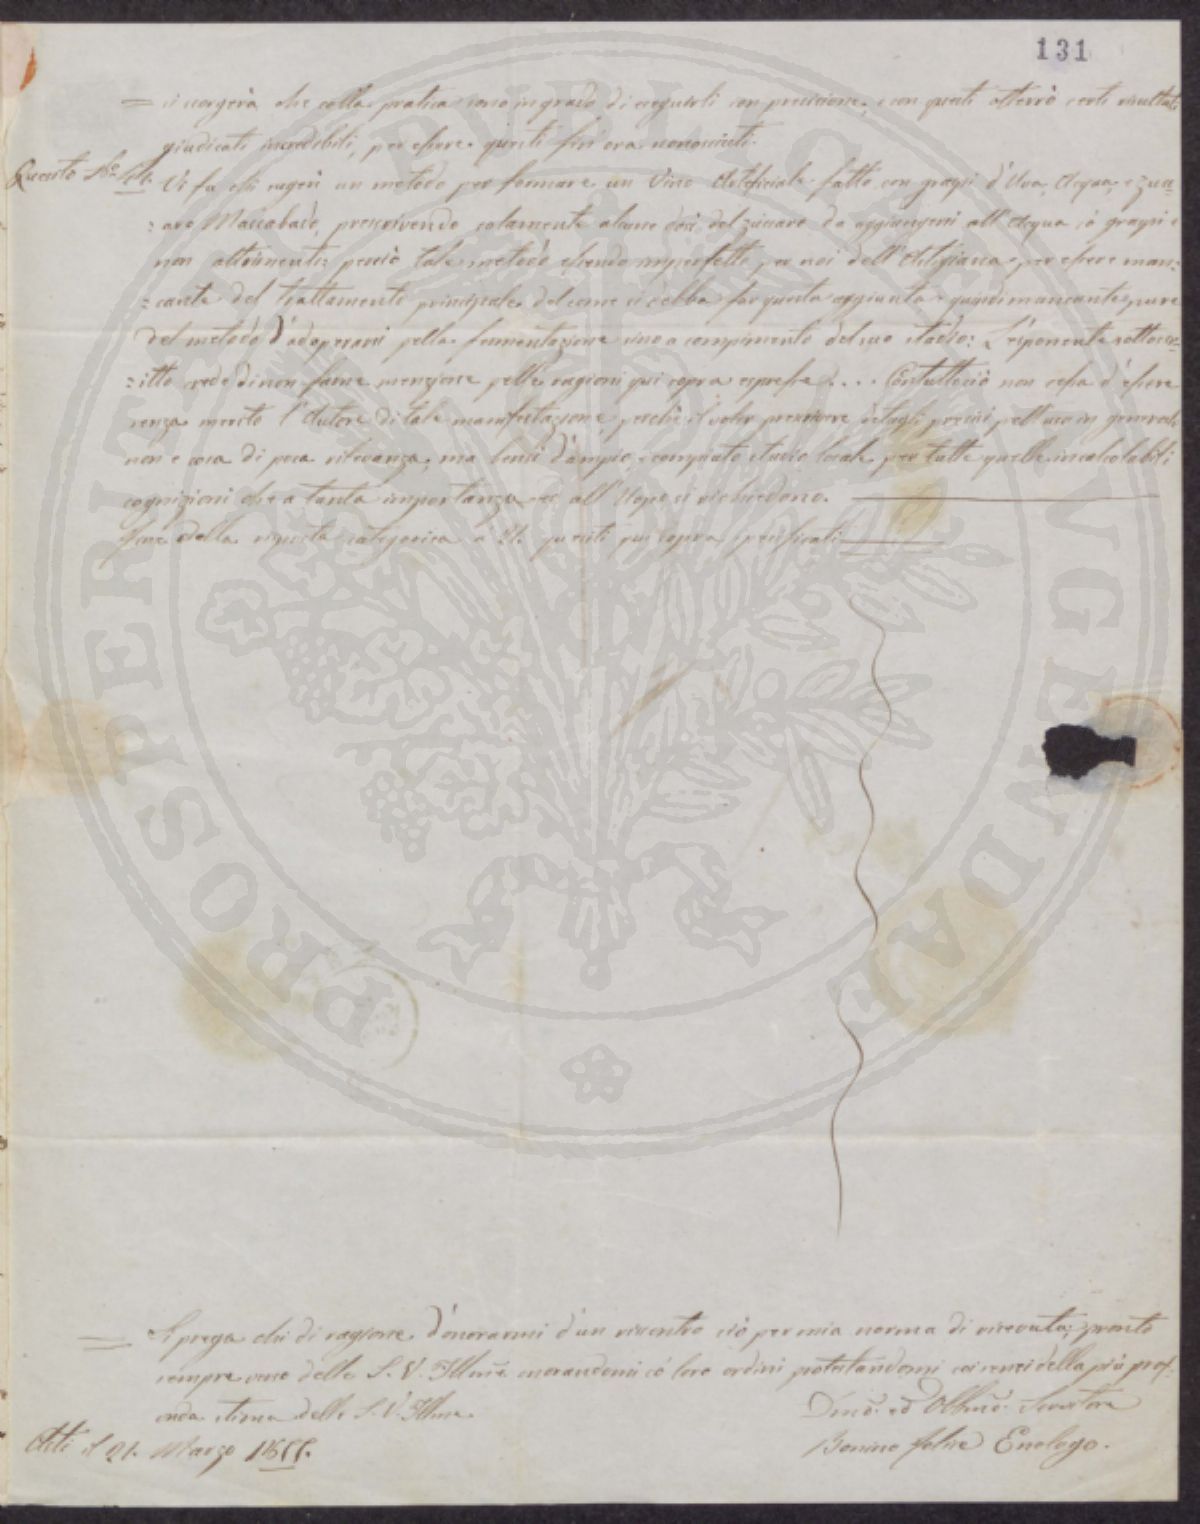 131
= si scorgerà che colla pratica sono in grado di eseguirli con precisione, e con questi otterrò certi risultati
giudicati incredibili, per essere questi fin'ora sconosciuti.
Quesito
Vi fu chi suggerì un metodo per formare un Vino Arteficiale fatto con graspi d'Uva, Acqua, e Zuc=
:aro Mascabado, prescrivendo solamente alcune dosi del zuccaro da aggiungersi all'Acqua e graspi e
non altrimenti: perciò tale metodo essendo imperfetto per noi dell'Astigiana, per essere man:
:cante del trattamento principale del come si debba far questa aggiunta, quindi mancante pure
del metodo d'adoperarsi pella fermentazione sino a compimento del suo stadio: L'esponente sottoscr=
:itto crede di non farne menzione pelle ragioni qui sopra espresse.... Contuttociò non cessa d'essere
senza merito l'Autore di tale manifestazione perchè il voler prescrivere detagli precisi pell'uso in generale
non è cosa di poca rilevanza, ma bensì d'ampio, e compiuto studio locale per tutte quelle incalcolabili
cognizioni che a tanta importanza ed all'Uopo si richiedono.
Fine della risposta categorica a quesiti qui sopra specificati
= Si prega chi di ragione d'onorarmi d'un riscontro ciò per mia norma di ricevuta; pronto
sempre delle S. V. Illme onorandomi co' loro ordini protestandomi coi sensi della più prof:
onda stima delle S. V. Illme.
Devmo. ed Obblmo. Servitore
Asti il 21. Marzo
Bonino felice Enologo.